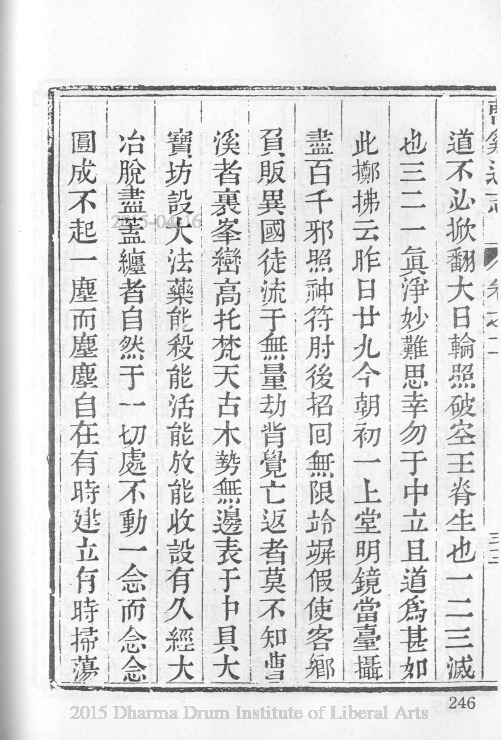 道不必掀翻大日輪照破空王脊生也一二三滅
也三二一眞淨妙難思幸勿于中立且道為甚如
此擲拂云昨日廿九今朝初一上堂明鏡當臺攝
盡百千邪照神符肘後招囘無限竛竮假使客鄉
負販異國徒流于無量劫背覺亡返者莫不知曹
溪者裏峯巒高托梵天古木勢無邊表于中具大
寶坊設大法藥能殺能活能放能收設有久經大
冶脫盡蓋纏者自然于一切處不動一念而念念
圓成不起一塵而塵塵自在有時建立有時掃蕩
246
2015 Dharma Drum Institute of Liberal Arts